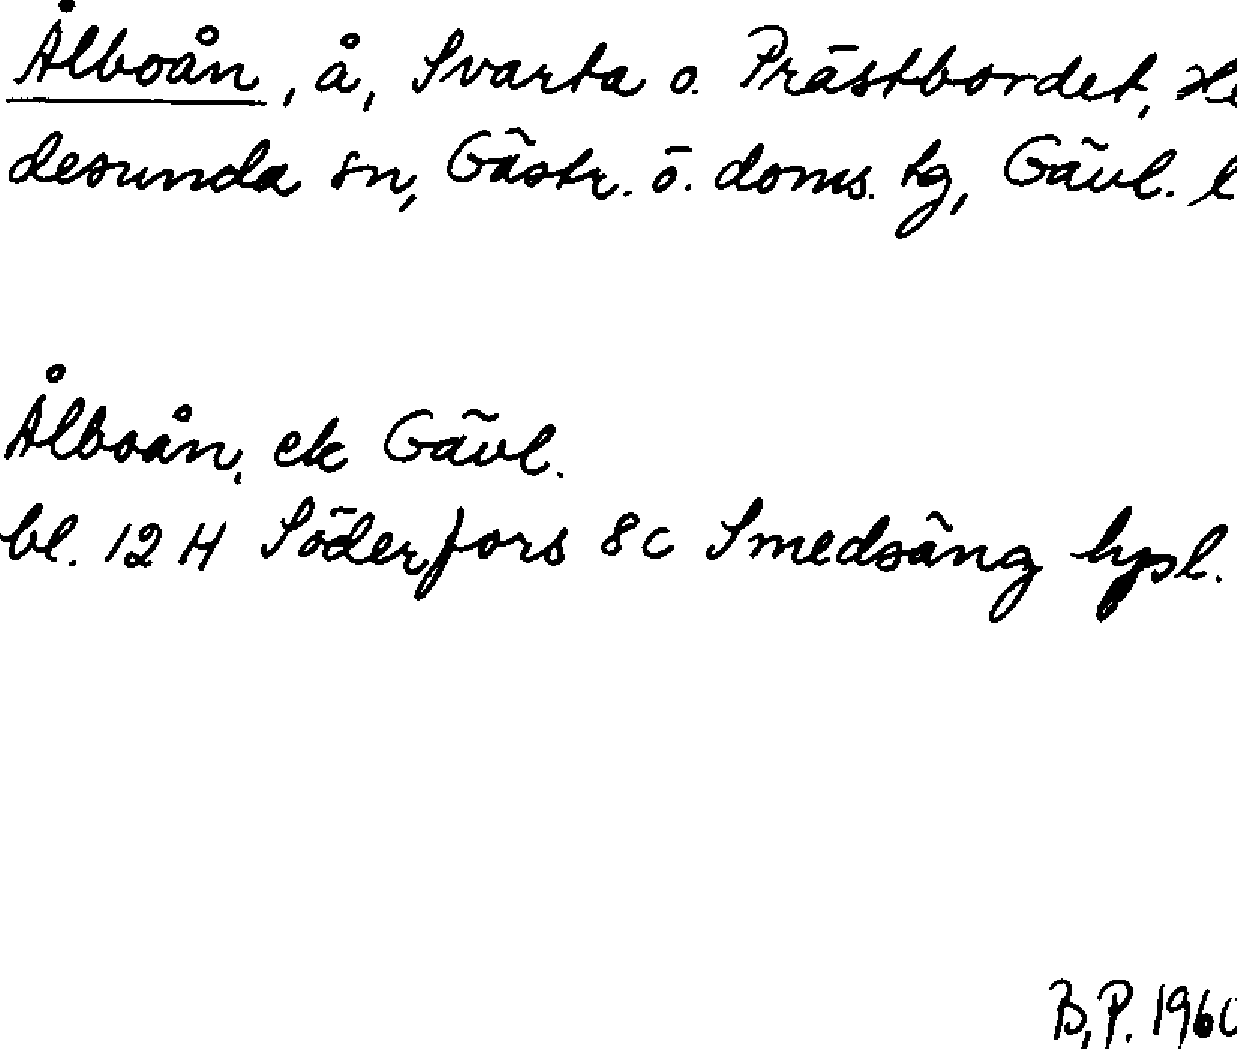 Ålboån, å, Svarta o. Prästbordet, He
desunda sn, Gästr. ö. doms. tg, Gävl. l
Ålboån, ek Gävl.
bl. 12 H Söderfors 8 c Smedsäng hpl.
B.P. 1960